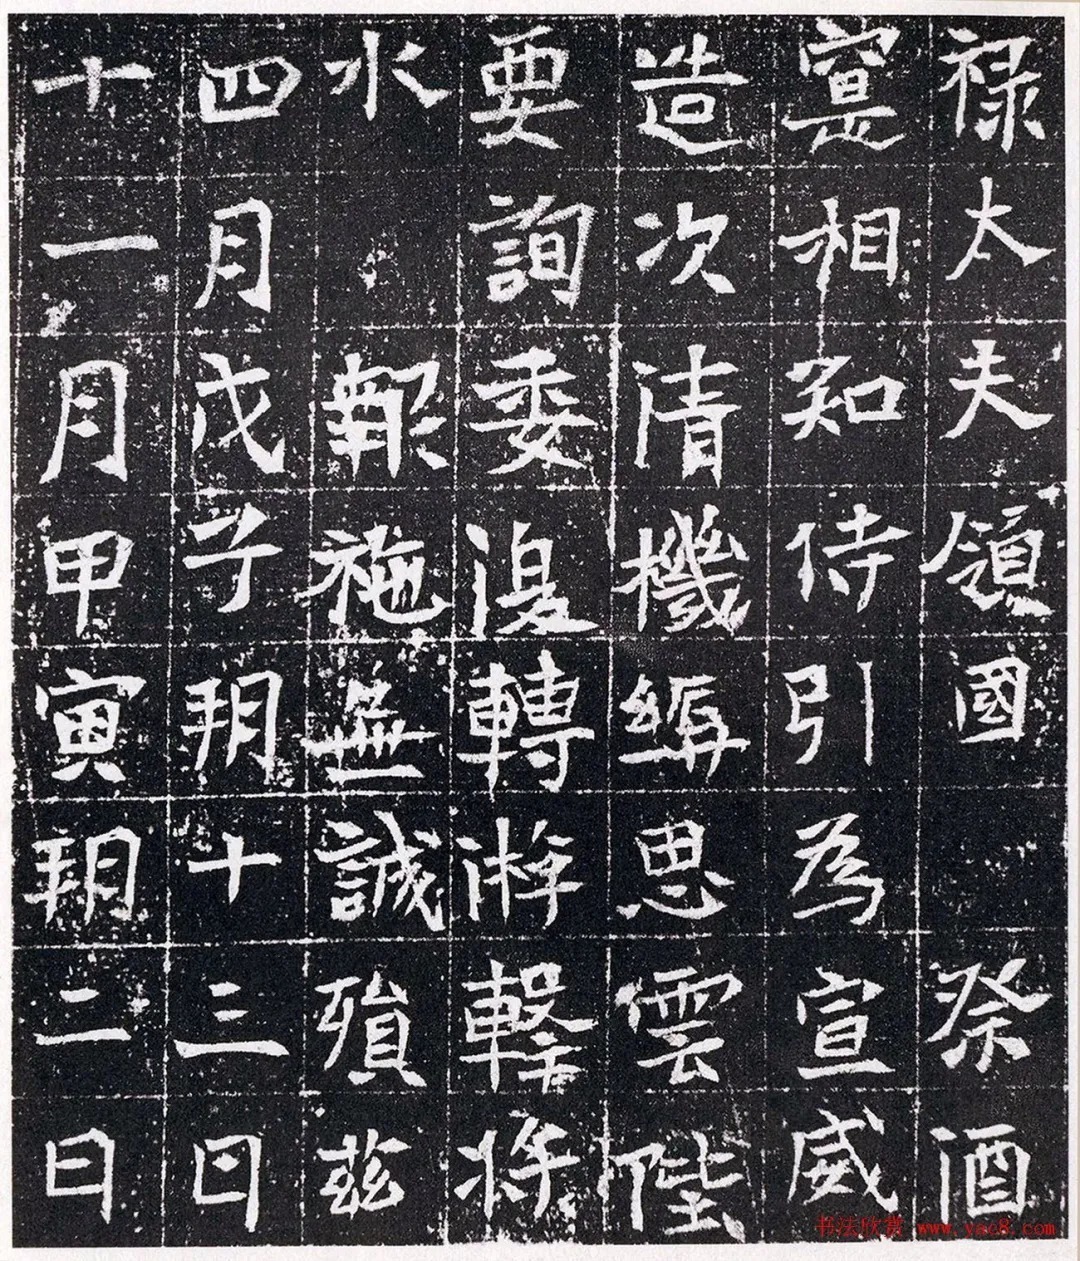 禄太夫領國 祭酒
寔相知侍引為宣威
造次清機思雲陛
要詢委復轉游擊將
水 報施無誠殞茲
四月戊子朔十三日
十一月甲寅朔二日
书法欣赏 www.yac8.com